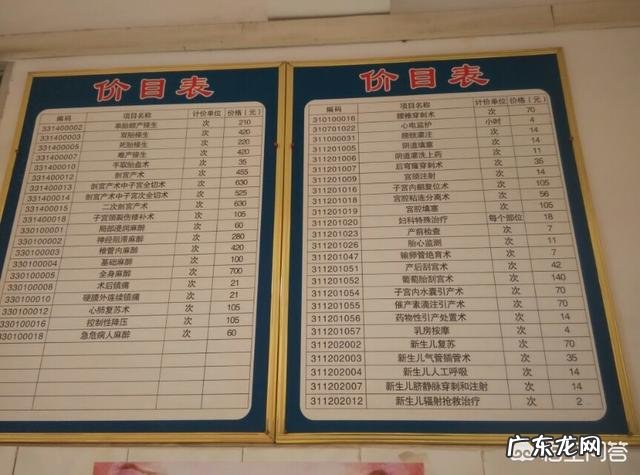 价目表
编码 项目名称 计价单位 价格(元)
331400002 单胎顺产接生 次 210
331400003 双胎接生 次 420
331400005 死胎接生 次 220
331400007 难产接生 次 420
331400010 手取胎盘术 次 35
331400012 剖宫产术 次 455
331400013 剖宫产术中子宫全切术 次 630
331400014 剖宫产术中子宫次全切术 次 525
331400015 二次剖宫产术 次 630
331400018 子宫颈裂伤修补术 次 105
330100001 局部浸润麻醉 次 60
330100002 神经阻滞麻醉 次 280
330100003 椎管内麻醉 次 420
330100004 基础麻醉 次 100
330100005 全身麻醉 次 700
330100008 术后镇痛 次 21
330100010 硬膜外连续镇痛 次 21
330100012 心肺复苏术 次 105
330100016 控制性降压 次 105
330100018 急危病人麻醉 次 60
价目表
编码 项目名称 计价单位 价格(元)
310100016 腰椎穿刺术 次 70
310701022 心电监护 小时 4
311000031 膀胱灌注 次 14
311201005 阴道填塞 次 14
311201006 阴道灌洗上药 次 11
311201007 后穹窿穿刺术 次 35
311201009 宫颈注射 次 14
311201016 子宫内翻复位术 次 105
311201018 宫腔粘连分离术 次 56
311201019 宫腔填塞 次 105
311201020 妇科特殊治疗 每个部位 18
311201023 产前检查 次 7
311201026 胎心监测 次 11
311201047 输卵管绝育术 次 7
311201051 产后刮宫术 次 42
311201052 葡萄胎刮宫术 次 140
311201054 子宫内水囊引产术 次 70
311201055 催产素滴注引产术 次 70
311201056 药物性引产处置术 次 14
311201057 乳房按摩 次 4
311202002 新生儿复苏 次 70
311202003 新生儿气管插管术 次 35
311202004 新生儿人工呼吸 次 14
311202007 新生儿脐静脉穿刺和注射 次 14
311202012 新生儿辐射抢救治疗 次 2
广东龙网
www.gdhlwtz.com